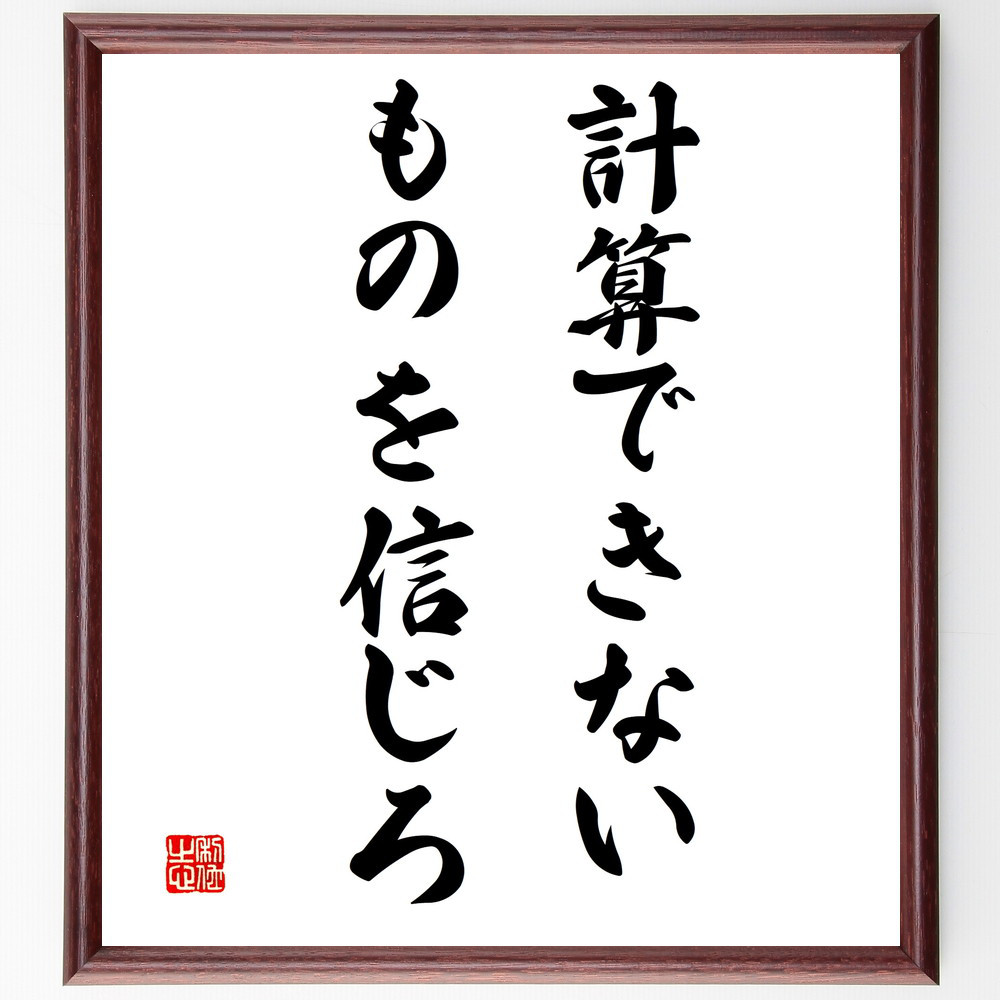 計算できない
ものを信じろ